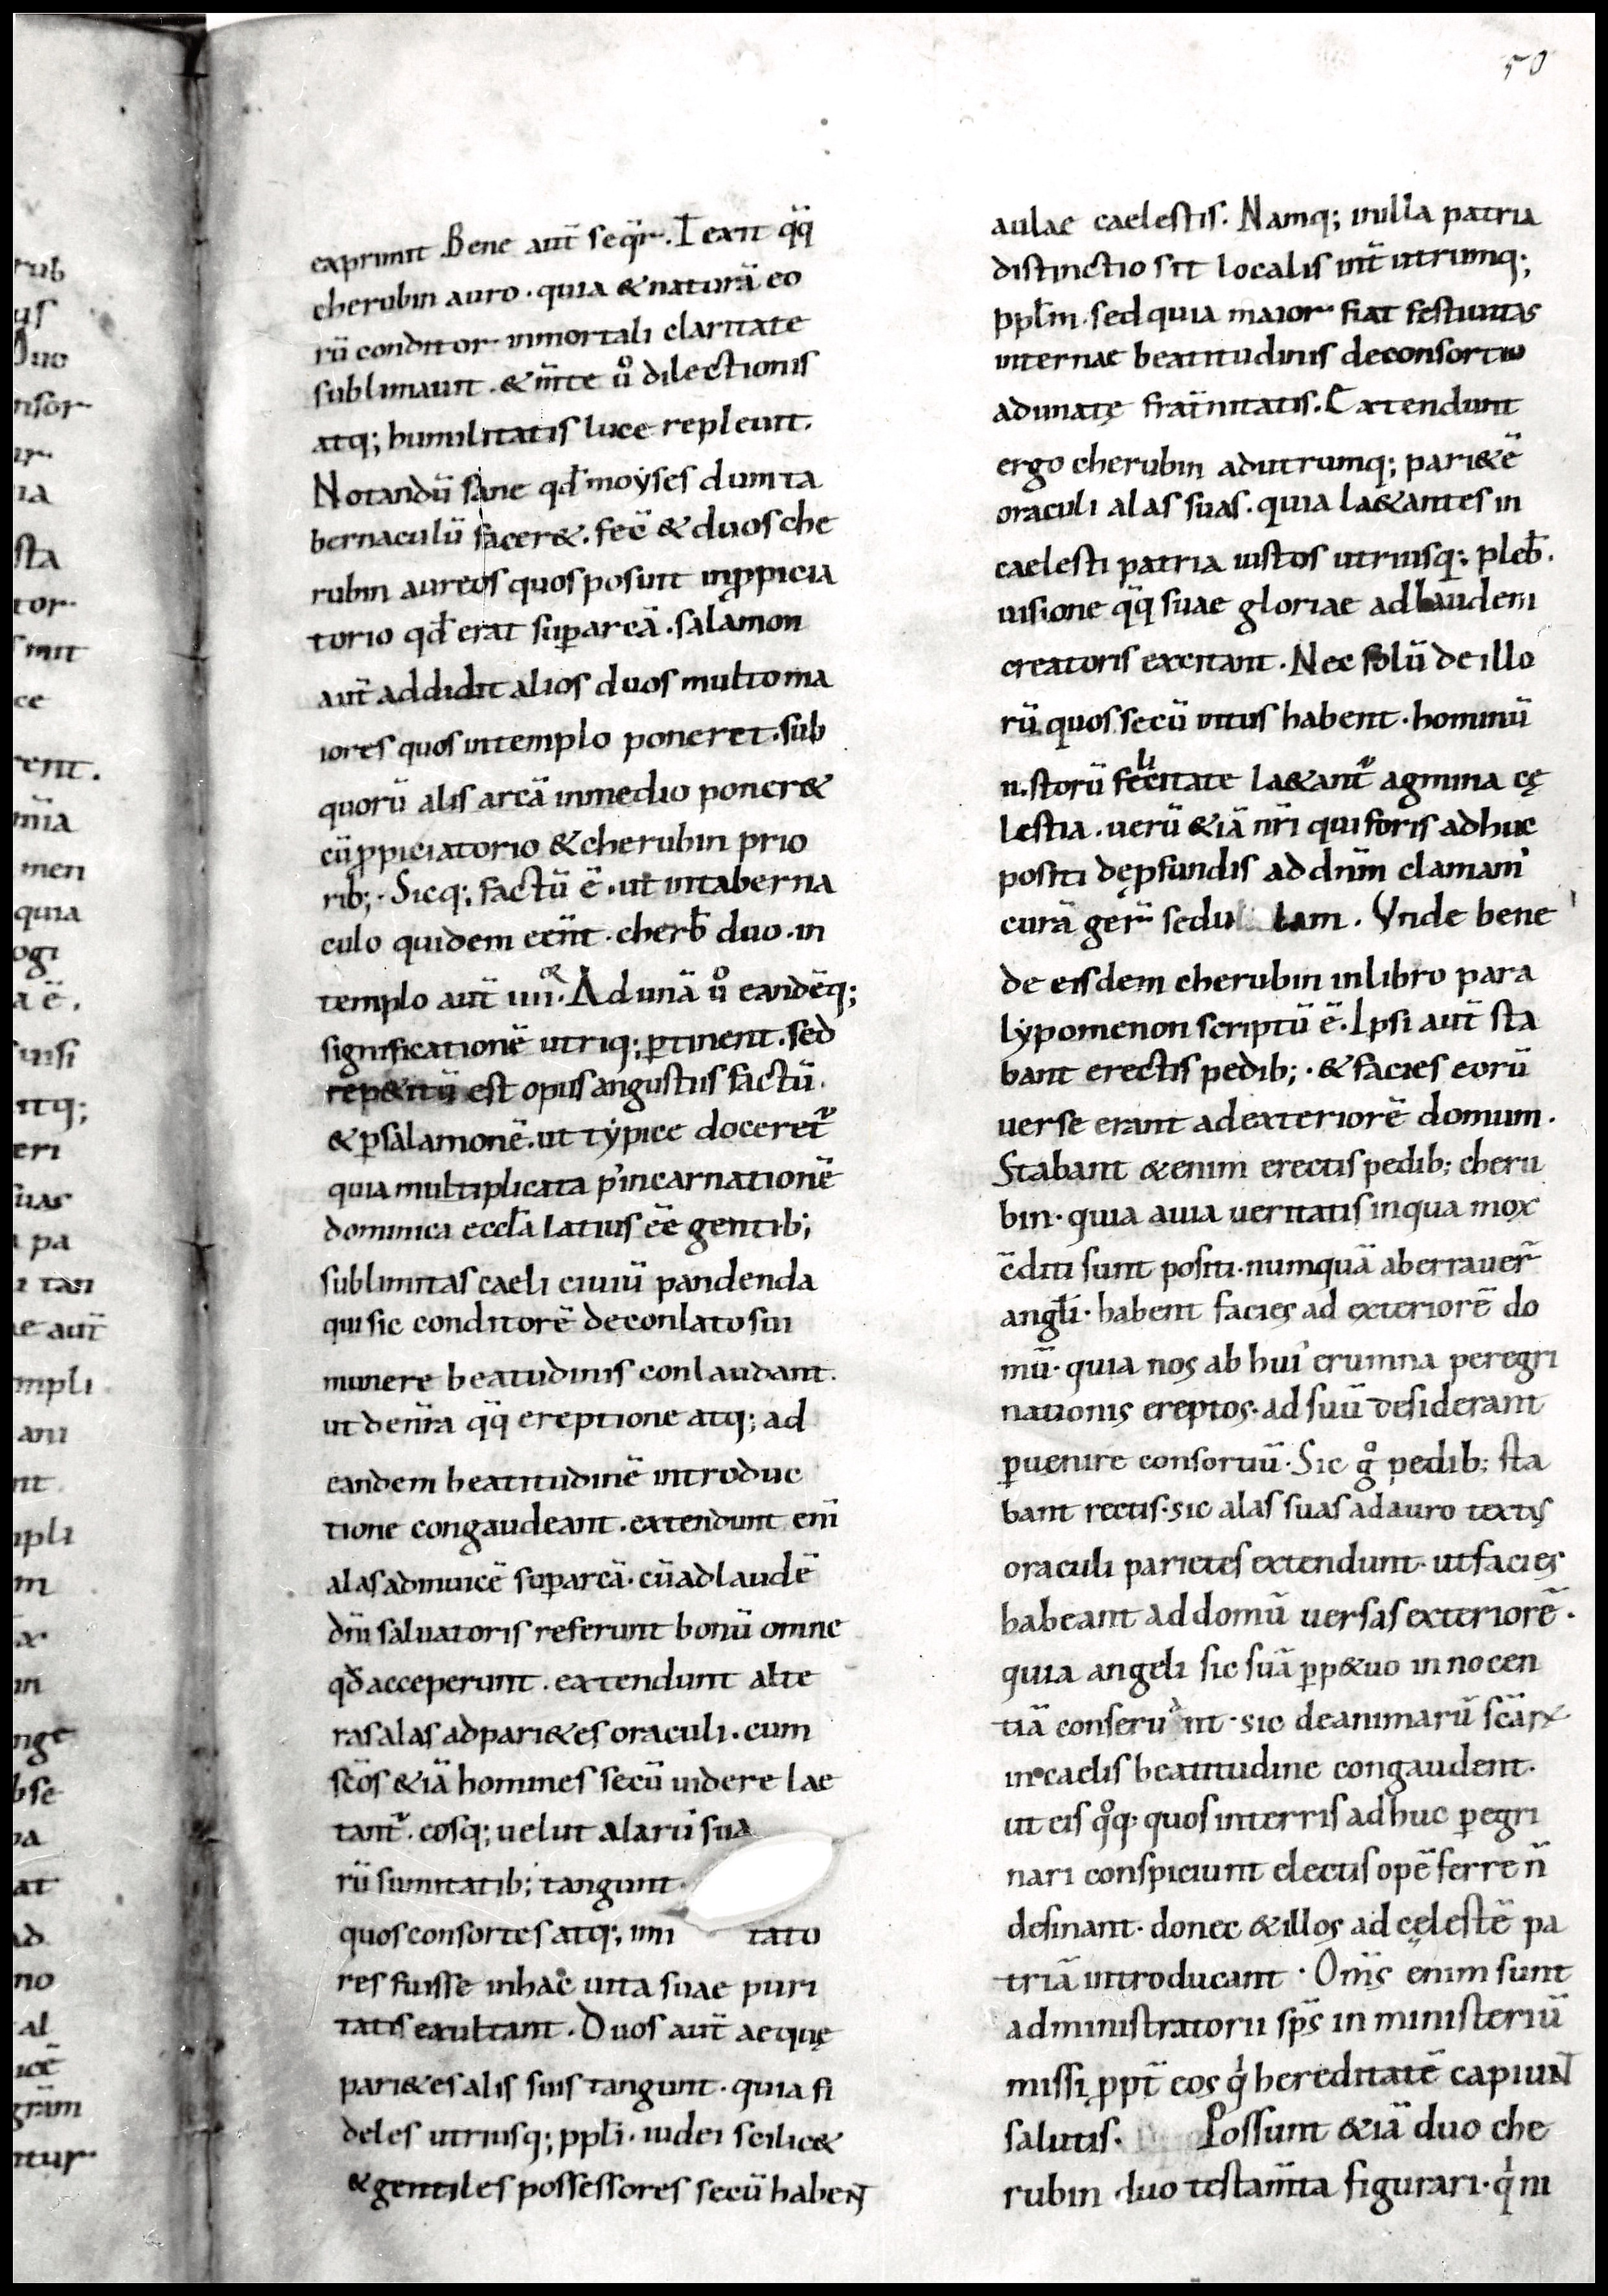 50
exprimit. Bene aut̄ seq̄r. Texit q̄q̄
cherubin auro. quia & naturā eo
rū conditor inmortali claritate
sublimauit. & m̄te ů dilectionis
atq; humilitatis luce repleuit.
Notandū sane qđ moẏses dum ta
bernaculū facer&. fec̄ & duos che
rubin aureos quos posuit in ꝓpicia
torio qđ erat suꝑ arcā. salamon
aut̄ addidit alios duos multo ma
iores quos in templo poneret. sub
quorū alis arcā in medio poner&
cū ꝓpiciatorio & cherubin prio
rib;. Sicq; factū ē. ut in taberna
culo quidem eēnt. cherb̄ duo. in
templo aut̄ iiiior. Ad unā ů eandēq;
significationē utriq; ꝑtinent. sed
rep&itū est opus angustus factū.
& ꝑ salamonē. ut tẏpice doceret̄
quia multiplicata p̱ incarnationē
dominica eccła latius eē gentib;
sublimitas caeli ciuiū pandenda
qui sic conditorē de conlato sui
munere beatudinis conlaudant.
ut de nr̄a q̄q̄ ereptione atq; ad
eandem beatitudinē introduc
tione congaudeant. extendunt eni̅
alas ad inuicē suꝑ arcā. cū ad laudē
dn̄i saluatoris referunt bonū omne
qđ acceperunt. extendunt alte
ras alas ad pari&es oraculi. cum
scōs &iā homines secū uidere lae
tant̄. eosq; uelut alarū sua
rū sumitatib; tangunt.
quos consortes atq; imi tato
res fuisse in hac uita suae puri
tatis exultant. Duos aut̄ aeque̜
pari&es alis suis tangunt. quia fi
deles utriusq; ppłi. iudei scilic&
& gentiles possessores secū habeɴt
aulae caelestis. Namq; in illa patria
distinctio sit localis int̄ utrumq;
ppłm. sed quia maior fiat festiuitas
internae beatitudinis de consortio
adunate̜ frat̄nitatis. Extendunt
ergo cherubin ad utrumq; pari&ē
oraculi alas suas. quia la&antes in
caelesti patria iustos utriusq; pleb̄.
uisione q̄q̄ suae gloriae ad laudem
creatoris excitant. Nec solū de illo
rū quos secū intus habent. hominū
iustorū felicitate la&ant̄ agmina ce̜
lestia. uerū &iā nr̄i qui foris adhuc
positi de ꝓfundis ad dn̄m clamam'
curā ger̄ sedu lam. Vnde bene
de eisdem cherubin in libro para
lẏpomenon scriptū ē. Ipsi aut̄ sta
bant erectis pedib;. & facies eorū
uerse erant ad exteriorē domum.
Stabant &enim erectis pedib; cheru
bin. quia a uia ueritatis in qua mox
c̄diti sunt positi. numquā aberrauer̄
angłi. habent facies ad exteriorē do
mū. quia nos ab hui' erumna peregri
nationis ereptos. ad suū desiderant
ꝑuenire consortiū. Sic g̊ pedib; sta
bant rectis. sic alas suas ad auro textis
oraculi parietes extendunt. ut facies
habeant ad domū uersas exteriorē.
quia angeli sic suā ꝑp&uo innocen
tiā conseruant. sic de animarū scārꝝ
in caelis beatitudine congaudent.
ut eis q̊q; quos in terris adhuc ꝑegri
nari conspiciunt electis opē ferre n̄
desinant. donec & illos ad ce̜lestē pa
triā introducant. Om̄s enim sunt
administratorii sp̄s in ministeriū
missi ꝓpt̄ eos qͥ hereditatē capiuɴt
salutis. Possunt &iā duo che
rubin duo testam̄ta figurari. qͥ ni